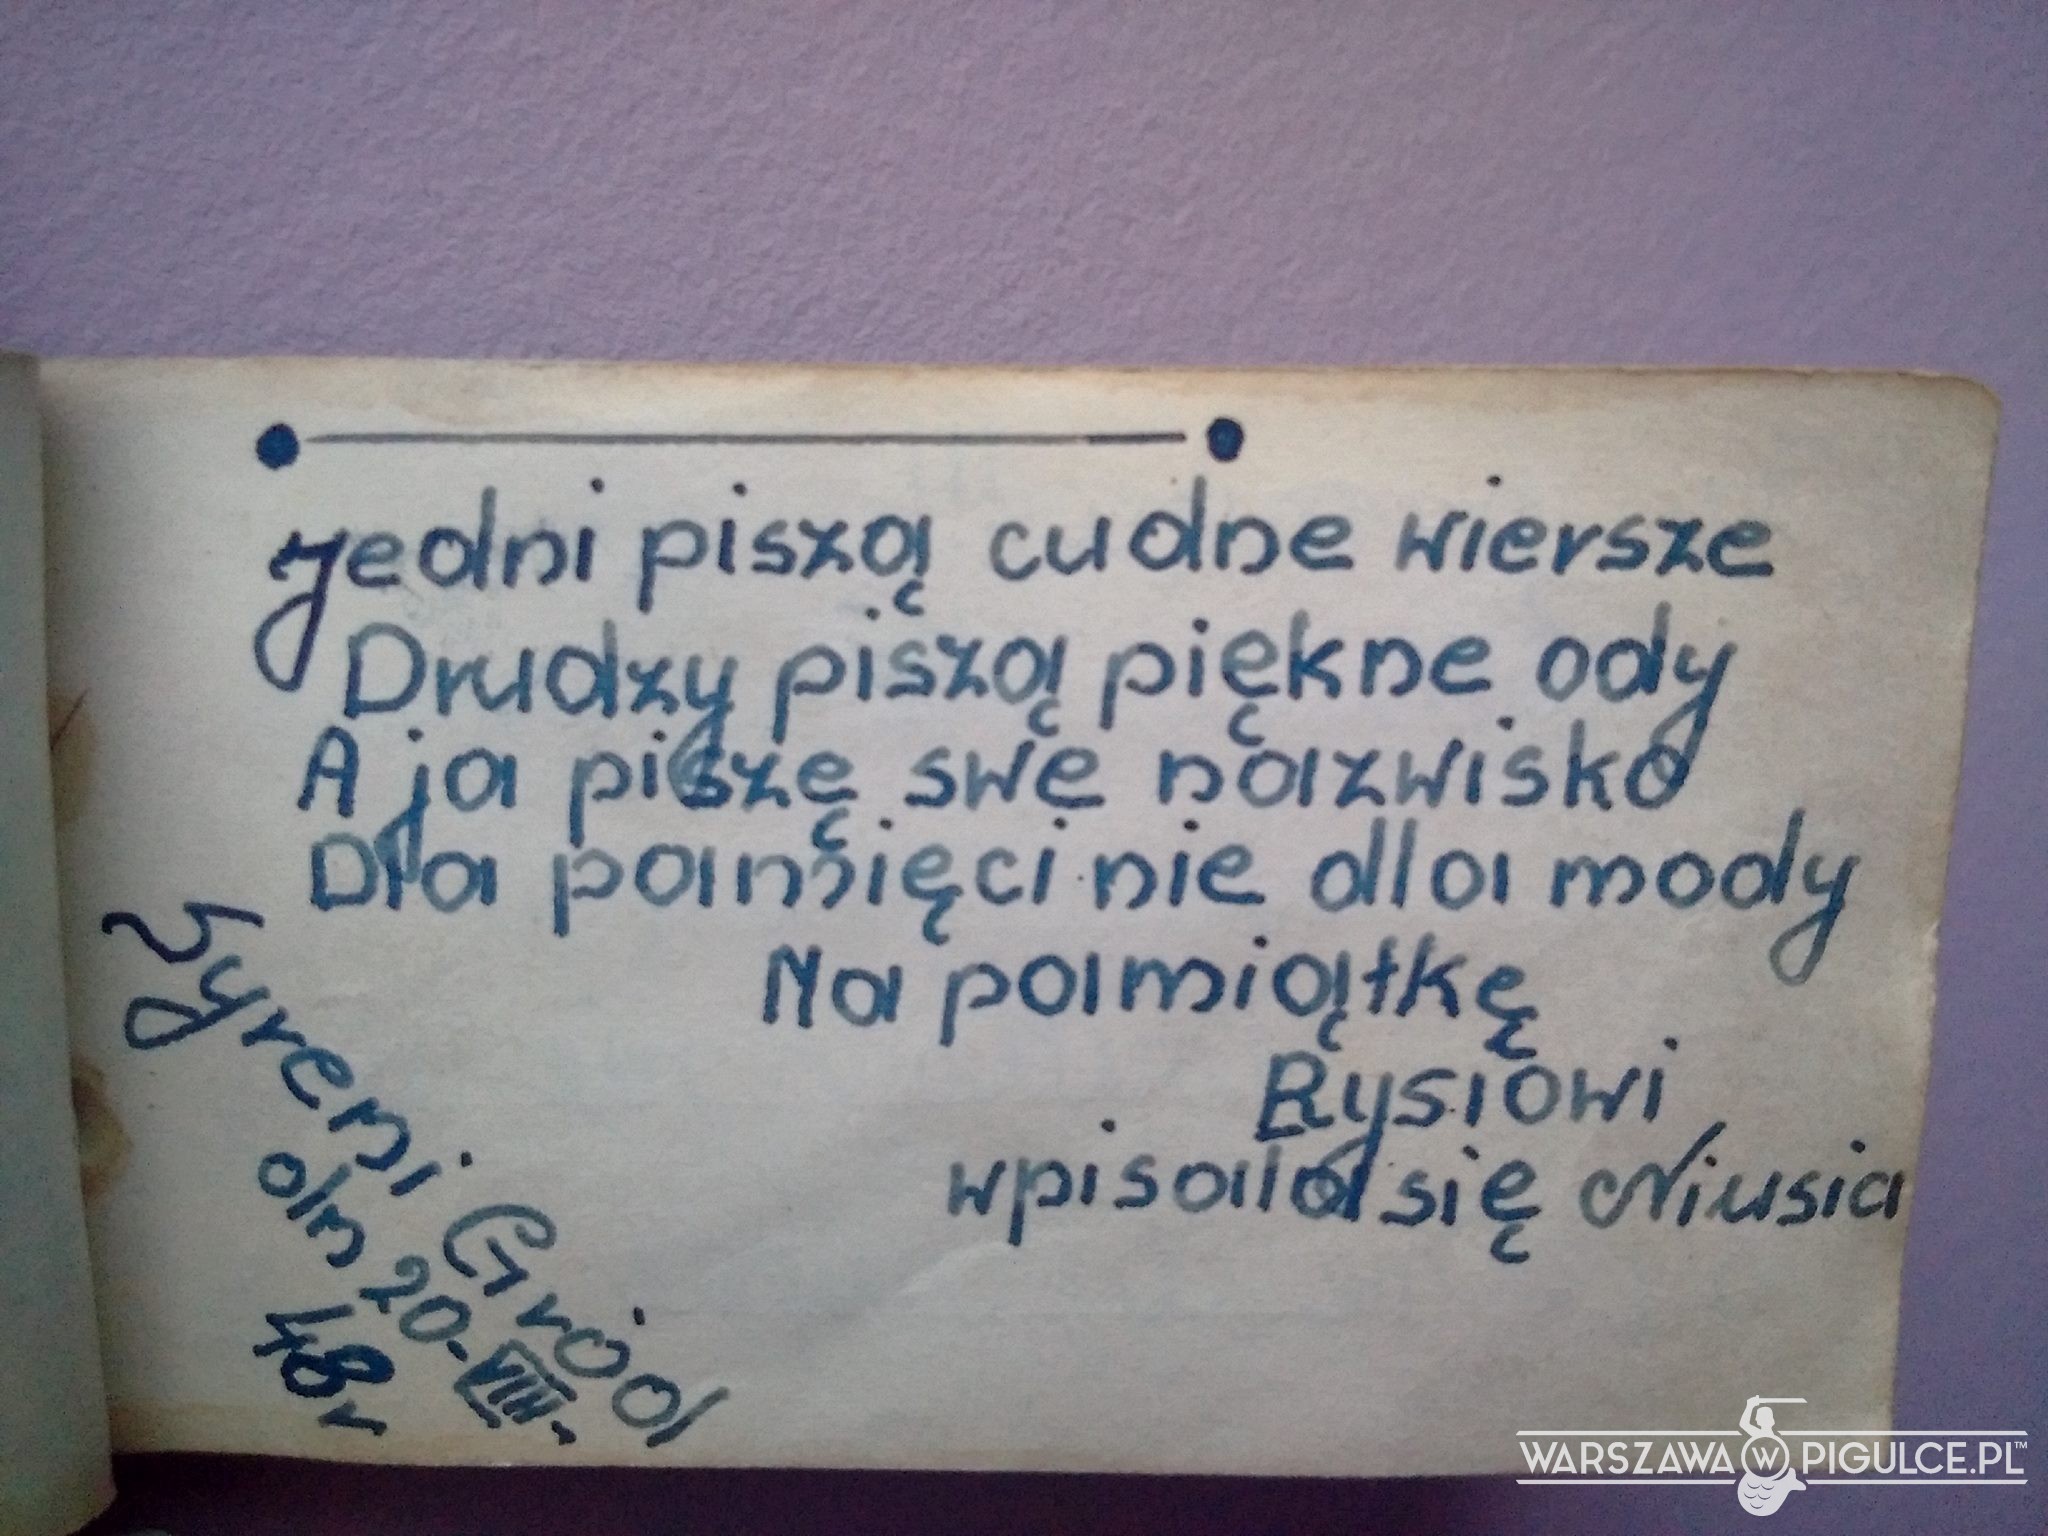 Jedni piszą cudne wiersze
Drudzy piszą piękne ody
A ja piszę swe nazwisko
Dla pamięci nie dla mody
Na pamiątkę
Rysiowi
wpisała się Niusia
Syreni Gród
dn 20-VIII-
48r
WARSZAWA W PIGULCE.PL™